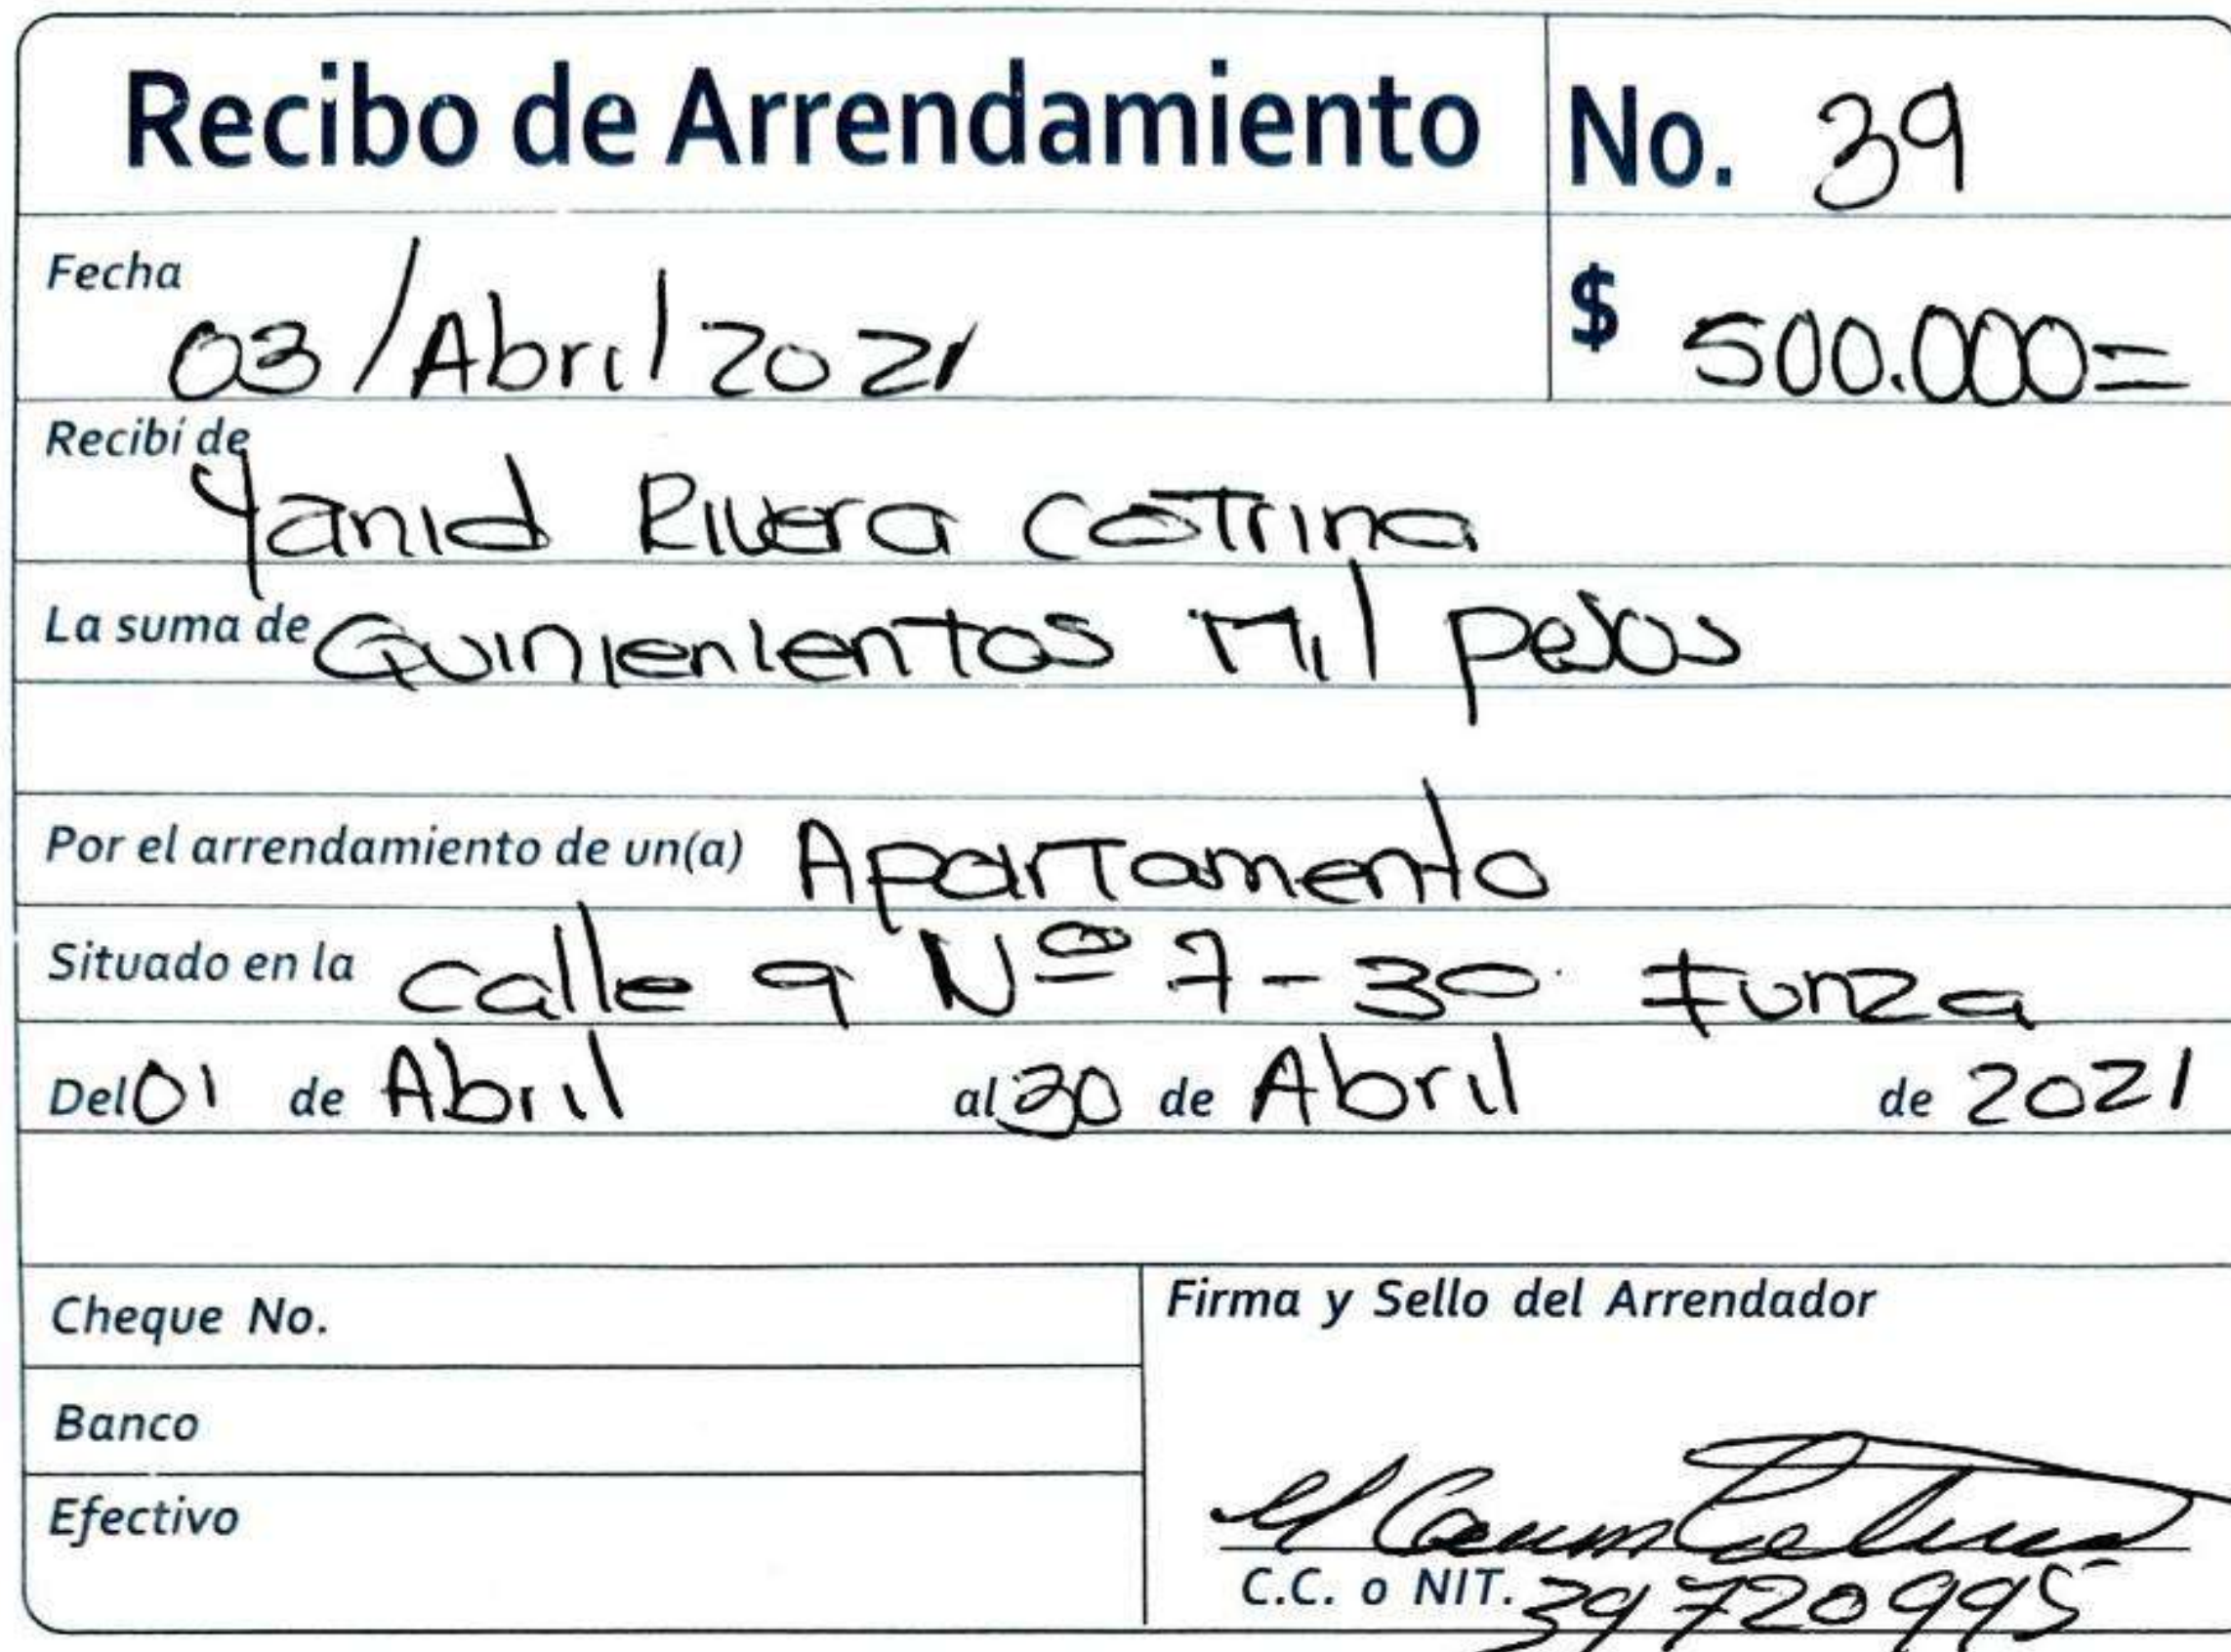 Recibo de Arrendamiento No. 39
Fecha 03/Abril 2021 $ 500.000=
Recibí de Yanid Rivera Cotrina
La suma de Quinienientos Mil pesos
Por el arrendamiento de un(a) Apartamento
Situado en la calle 9 Nº 7-30 Funza
Del 01 de Abril al 30 de Abril de 2021
Cheque No.
Firma y Sello del Arrendador
Banco
Efectivo
C.C. o NIT. 39720995